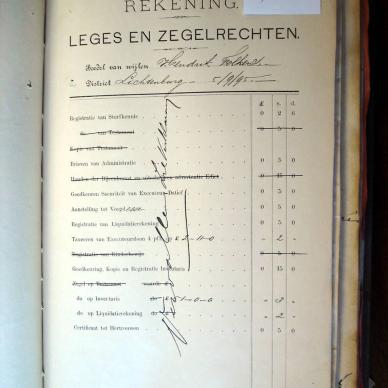 REKENING.
LEGES EN ZEGELRECHTEN.
Boedel van wijlen Hendrik
District Lichtenburg 5/9/95
£ s. d.
Registratie van Sterfkennis 0 2 6
do. van Testament 0 5 0
Kopie van Testament
Brieven van Administratie 0 5 0
0 15 0
Goedkeuren Securiteit van Executeur-Datief 0 5 0
Aanstelling tot Voogd 0 5 0
Registratie van Liquidatierekening 0 5 0
Taxeeren van Executeursloon 4 £2-11-0 - 2 -
Registratie van Kinderbewijs 0 5 0
Goedkeuring, Kopie en Registratie Inventaris 0 15 0
Zegel op Testament waarde
do op Inventaris do £51-0-0 - 3 -
do op Liquidatierekening do - 2 -
Certificaat tot Hertrouwen 0 5 0